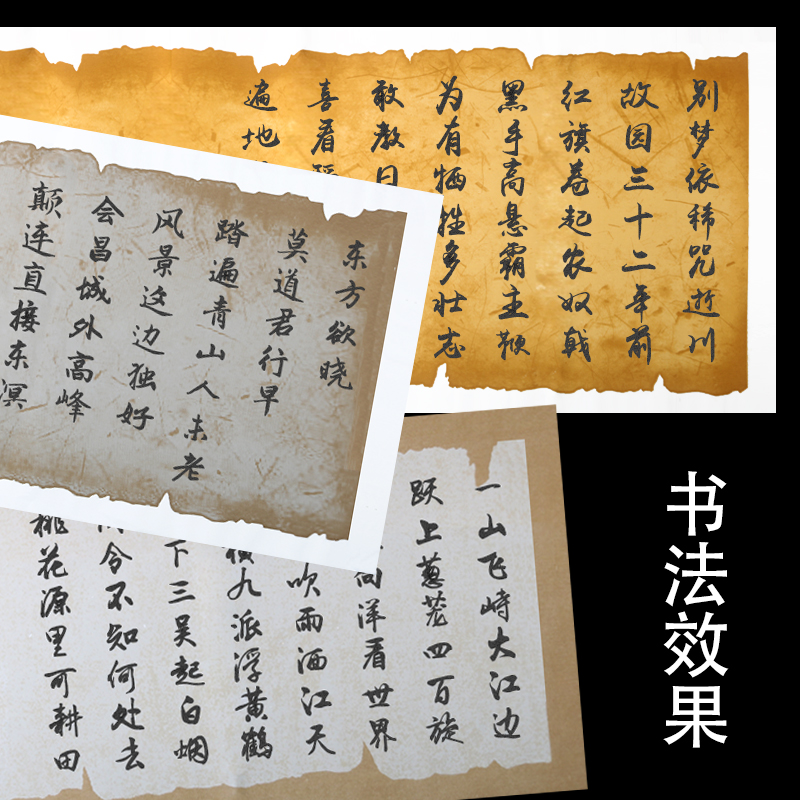 别梦依稀咒逝川
故园三十二年前
红旗卷起农奴戟
黑手高悬霸主鞭
为有牺牲多壮志
敢教日
喜看
遍地
东方欲晓
莫道君行早
踏遍青山人未老
风景这边独好
会昌城外高峰
颠连直接东溟
一山飞峙大江边
跃上葱茏四百旋
向洋看世界
吹雨洒江天
横九派浮黄鹤
下三吴起白烟
令不知何处去
桃花源里可耕田
书法效果